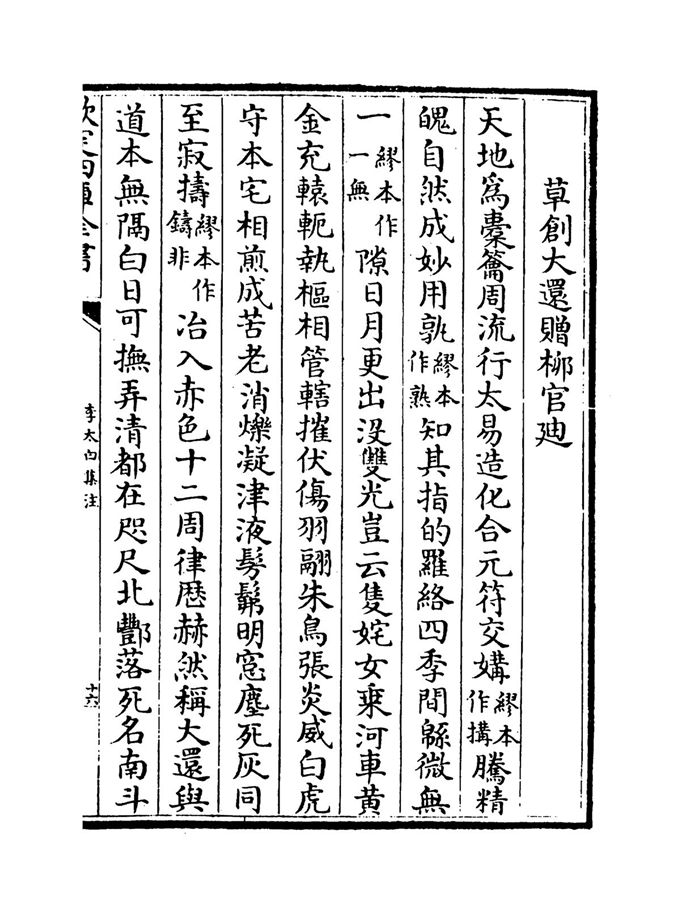 草創大還贈栁官廸
天地為槖籥周流行太易造化合元符交媾繆本作搆騰精
魄自然成妙用孰繆本作熟知其指的羅絡四季間緜微無
一繆本作一無隙日月更出沒雙光豈云隻姹女乗河車黄
金充轅軛執樞相管轄摧伏傷羽翮朱鳥張炎威白虎
守本宅相煎成苦老消爍凝津液髣髴明窓塵死灰同
至寂擣繆本作鑄非冶入赤色十二周律厯赫然稱大還與
道本無隔白日可撫弄清都在咫尺北酆落死名南斗
欽定四庫全書
李太白集注
十六